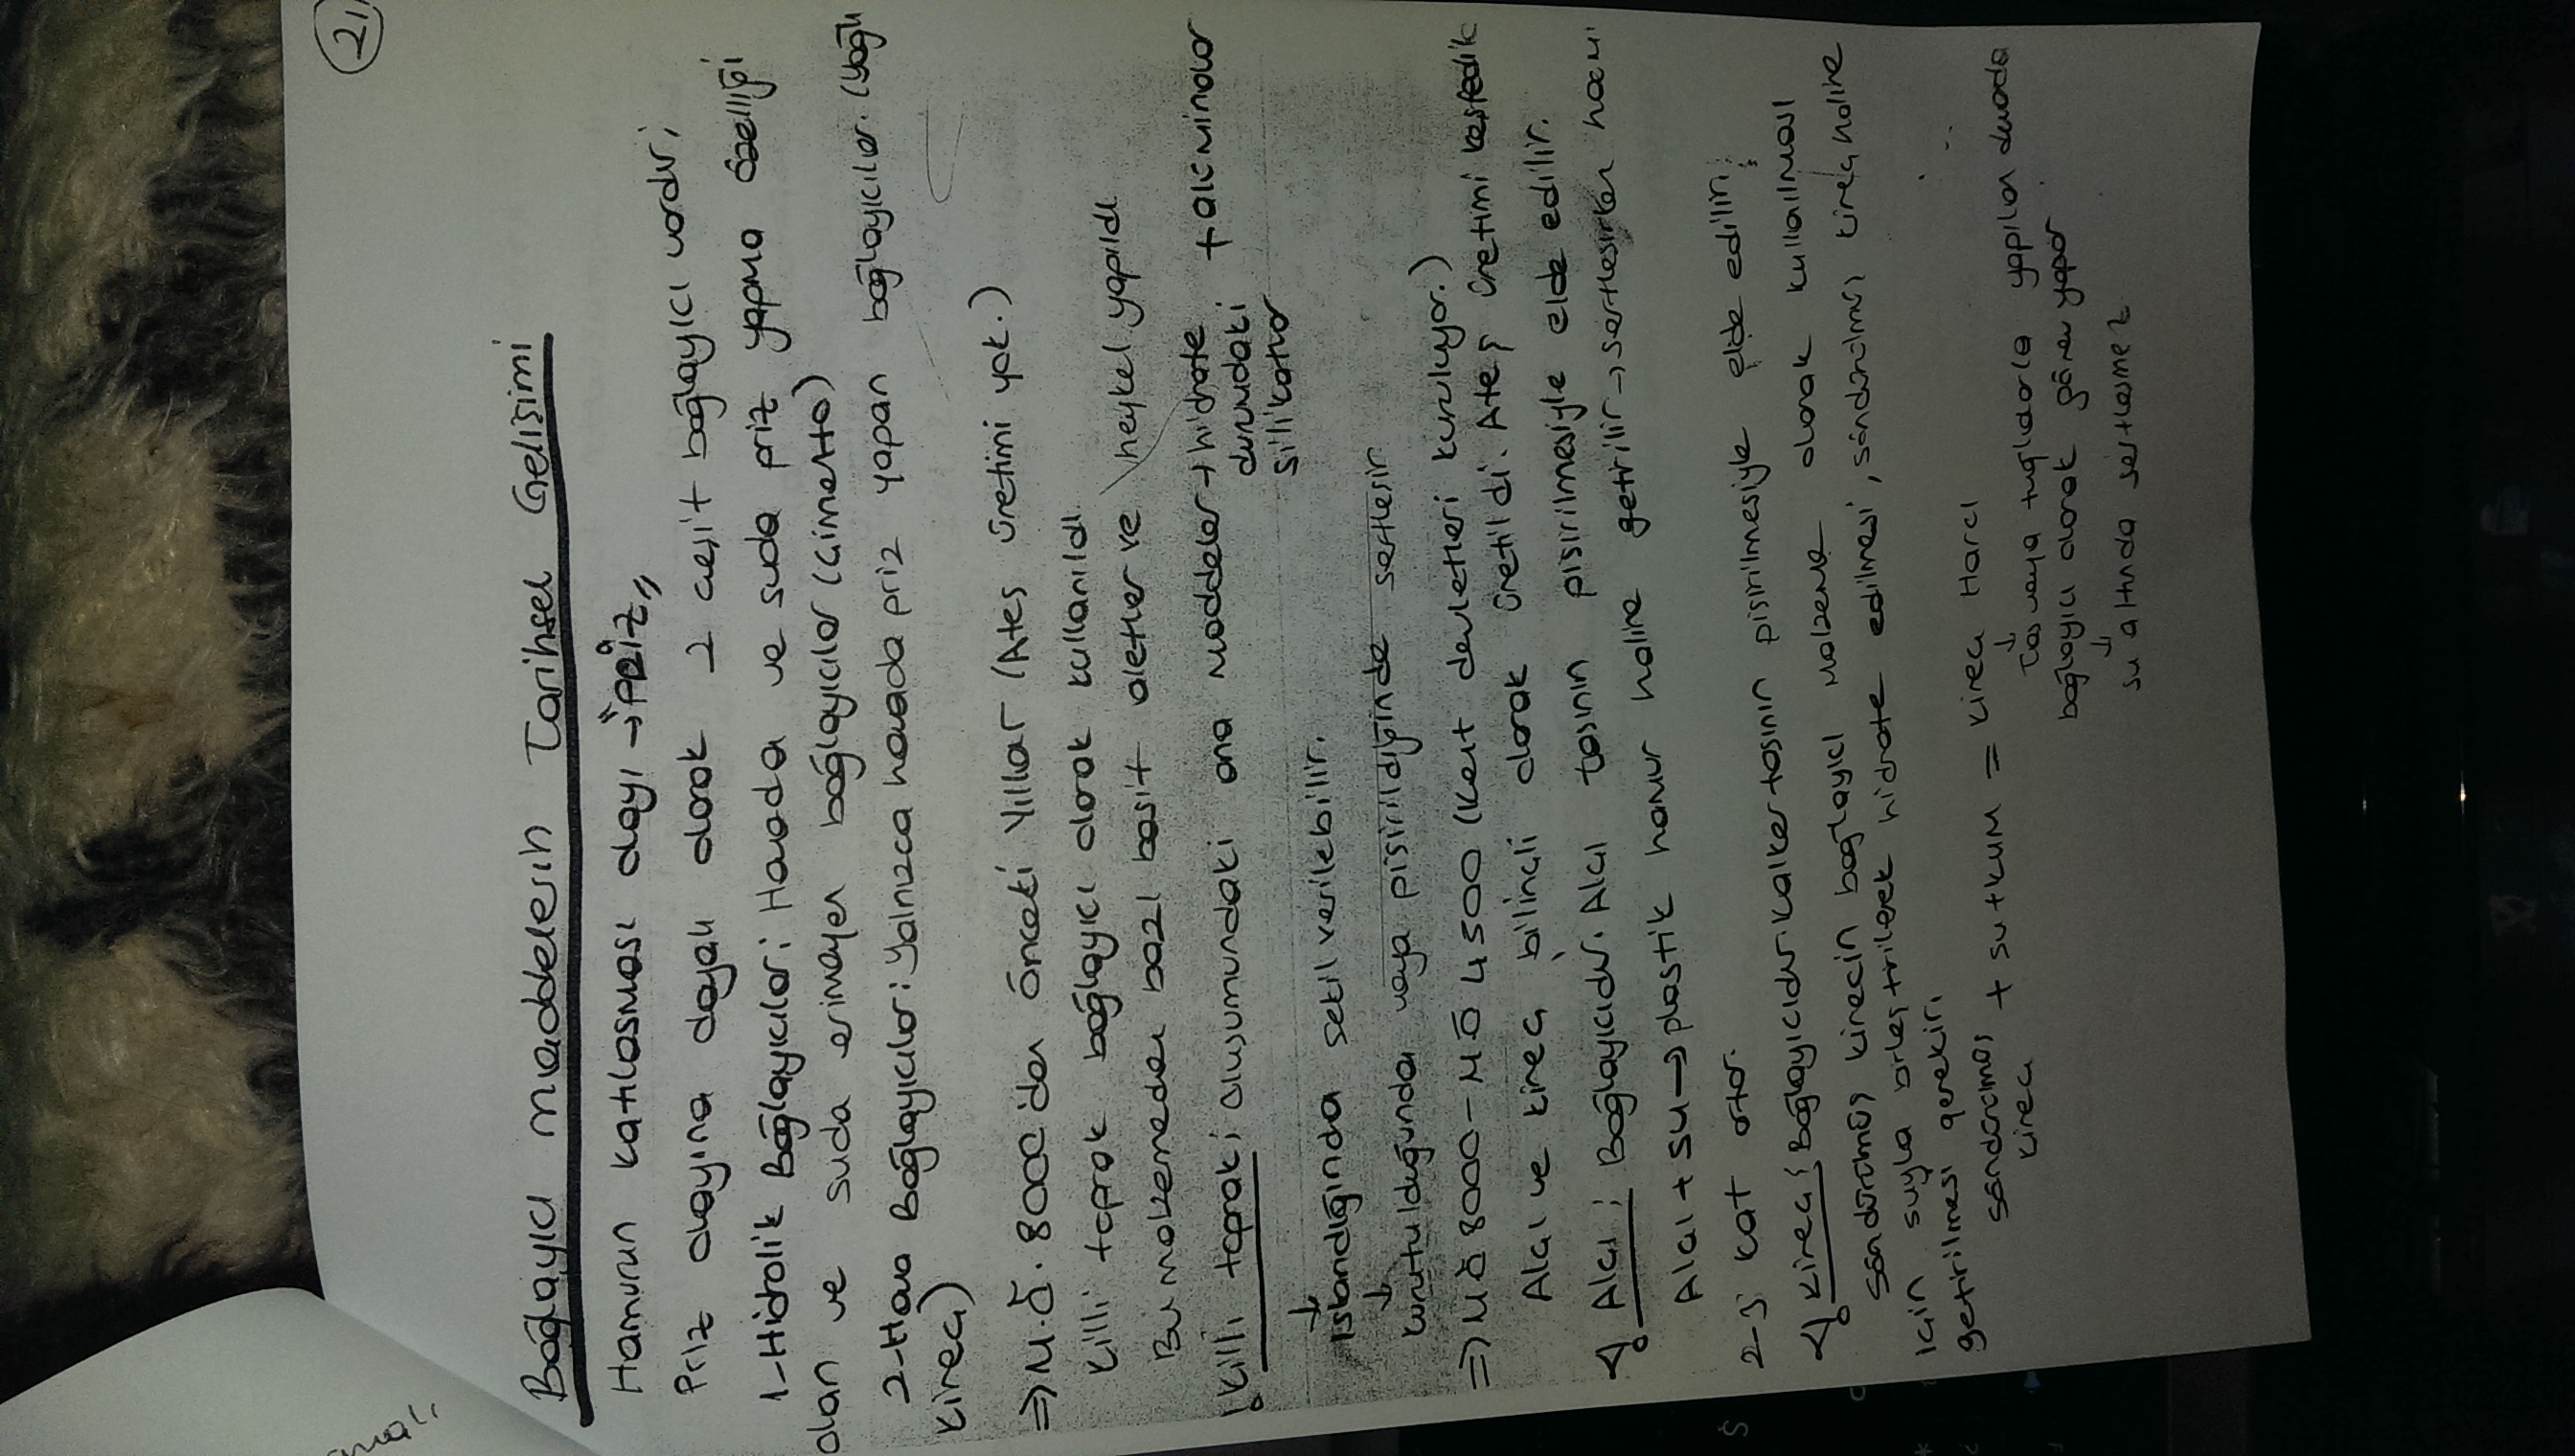 21
Bağlayıcı maddelerin Tarihsel Gelişimi
Hamurun katılaşması olayı → "PRİZ"
Priz olayına dayalı olarak 2 çeşit bağlayıcı vardır;
1-Hidrolik Bağlayıcılar: Havada ve suda priz yapma özelliği
olan ve suda erimeyen bağlayıcılar (Çimento)
2-Hava Bağlayıcılar: Yalnızca havada priz yapan bağlayıcılar. (Yağlı
kireç)
⇒ M.Ö. 8000'den önceki Yıllar (Ateş üretimi yok.)
Killi toprak bağlayıcı olarak kullanıldı.
Bu malzemeden bazı basit aletler ve heykel yapıldı
Killi toprak; oluşumundaki ana maddeler → hidrate + alüminalar
durumdaki
silikatlar
↓
Islandığında şekil verilebilir.
↓
kurutulduğunda veya pişirildiğinde sertleşir
⇒ MÖ 8000-MÖ 4500 (Kent devletleri kuruluyor.)
Alçı ve kireç bilinçli olarak üretildi. Ateş üretimi keşfedik
Alçı; Bağlayıcıdır. Alçı taşının pişirilmesiyle elde edilir.
Alçı + su → plastik hamur haline getirilir → sertleşirken hacmi
2-3 kat artar.
Kireç; Bağlayıcıdır. Kalker taşının pişirilmesiyle elde edilir;
Söndürülmüş kirecin bağlayıcı malzeme olarak kullanılması
için suyla birleştirilerek hidrate edilmesi, söndürülmüş kireç haline
getirilmesi gerekir.
söndürülmüş + su + kum = kireç Harcı
kireç
↓
Taş veya tuğlalarla yapılan duvarda
bağlayıcı olarak görev yapar
↓
su altında sertleşmez